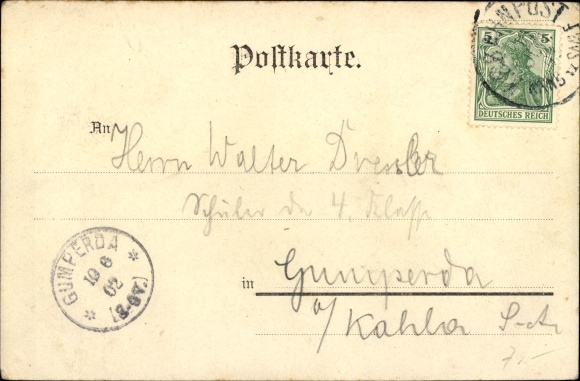 Postkarte.
5 5
DEUTSCHES REICH
An Herrn Walter Dressler
Schüler der 4. Klasse
in Gumperda
b/ Kahla S-A
GUMPERDA
19 6
02
7.-